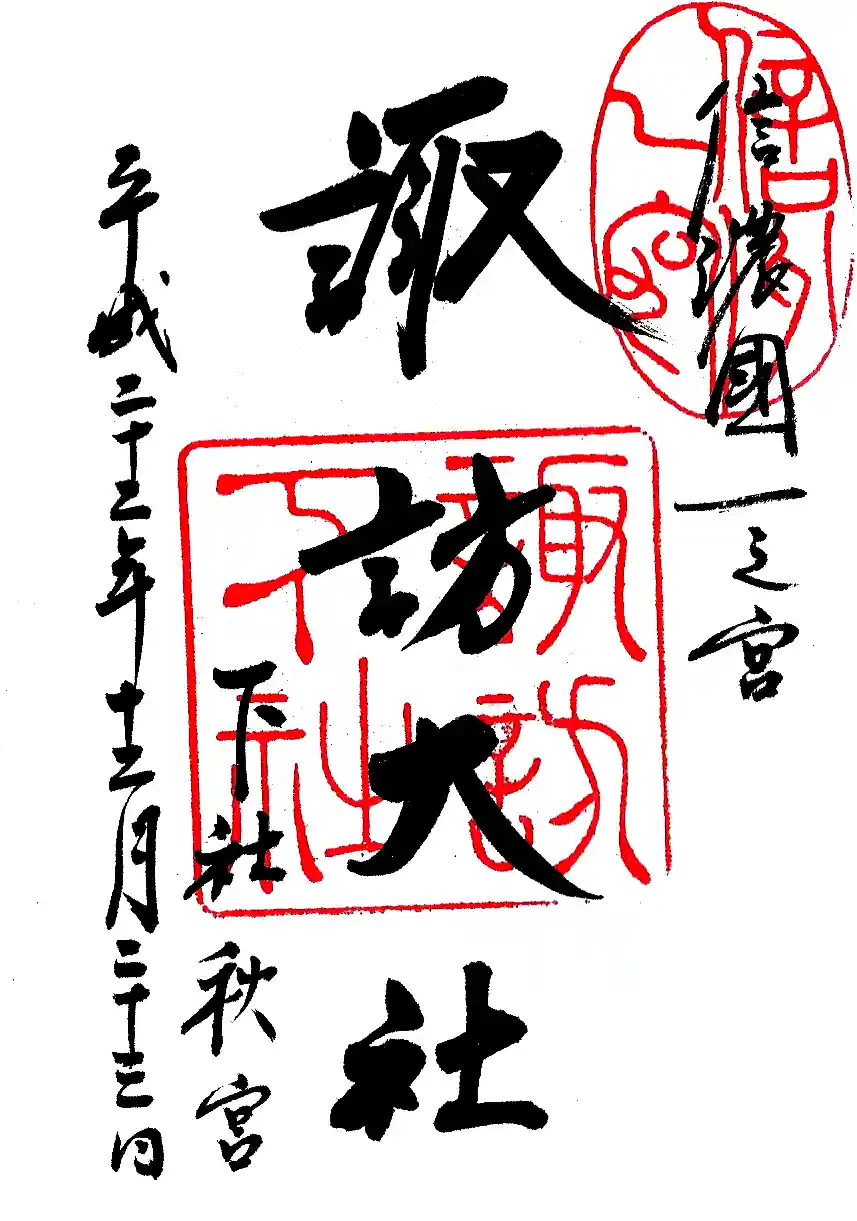 信濃國一之宮
諏訪大社
下社秋宮
平成二十三年十二月二十三日
信濃
一宮
諏訪
下社